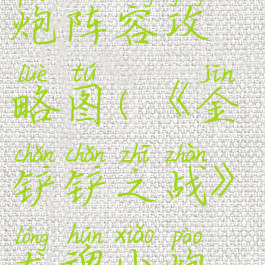 炮阵容攻
lüè tú jīn
略图(《金
chǎn chǎn zhī zhàn
铲铲之战》
lóng hún xiǎo pào
龙魂小炮